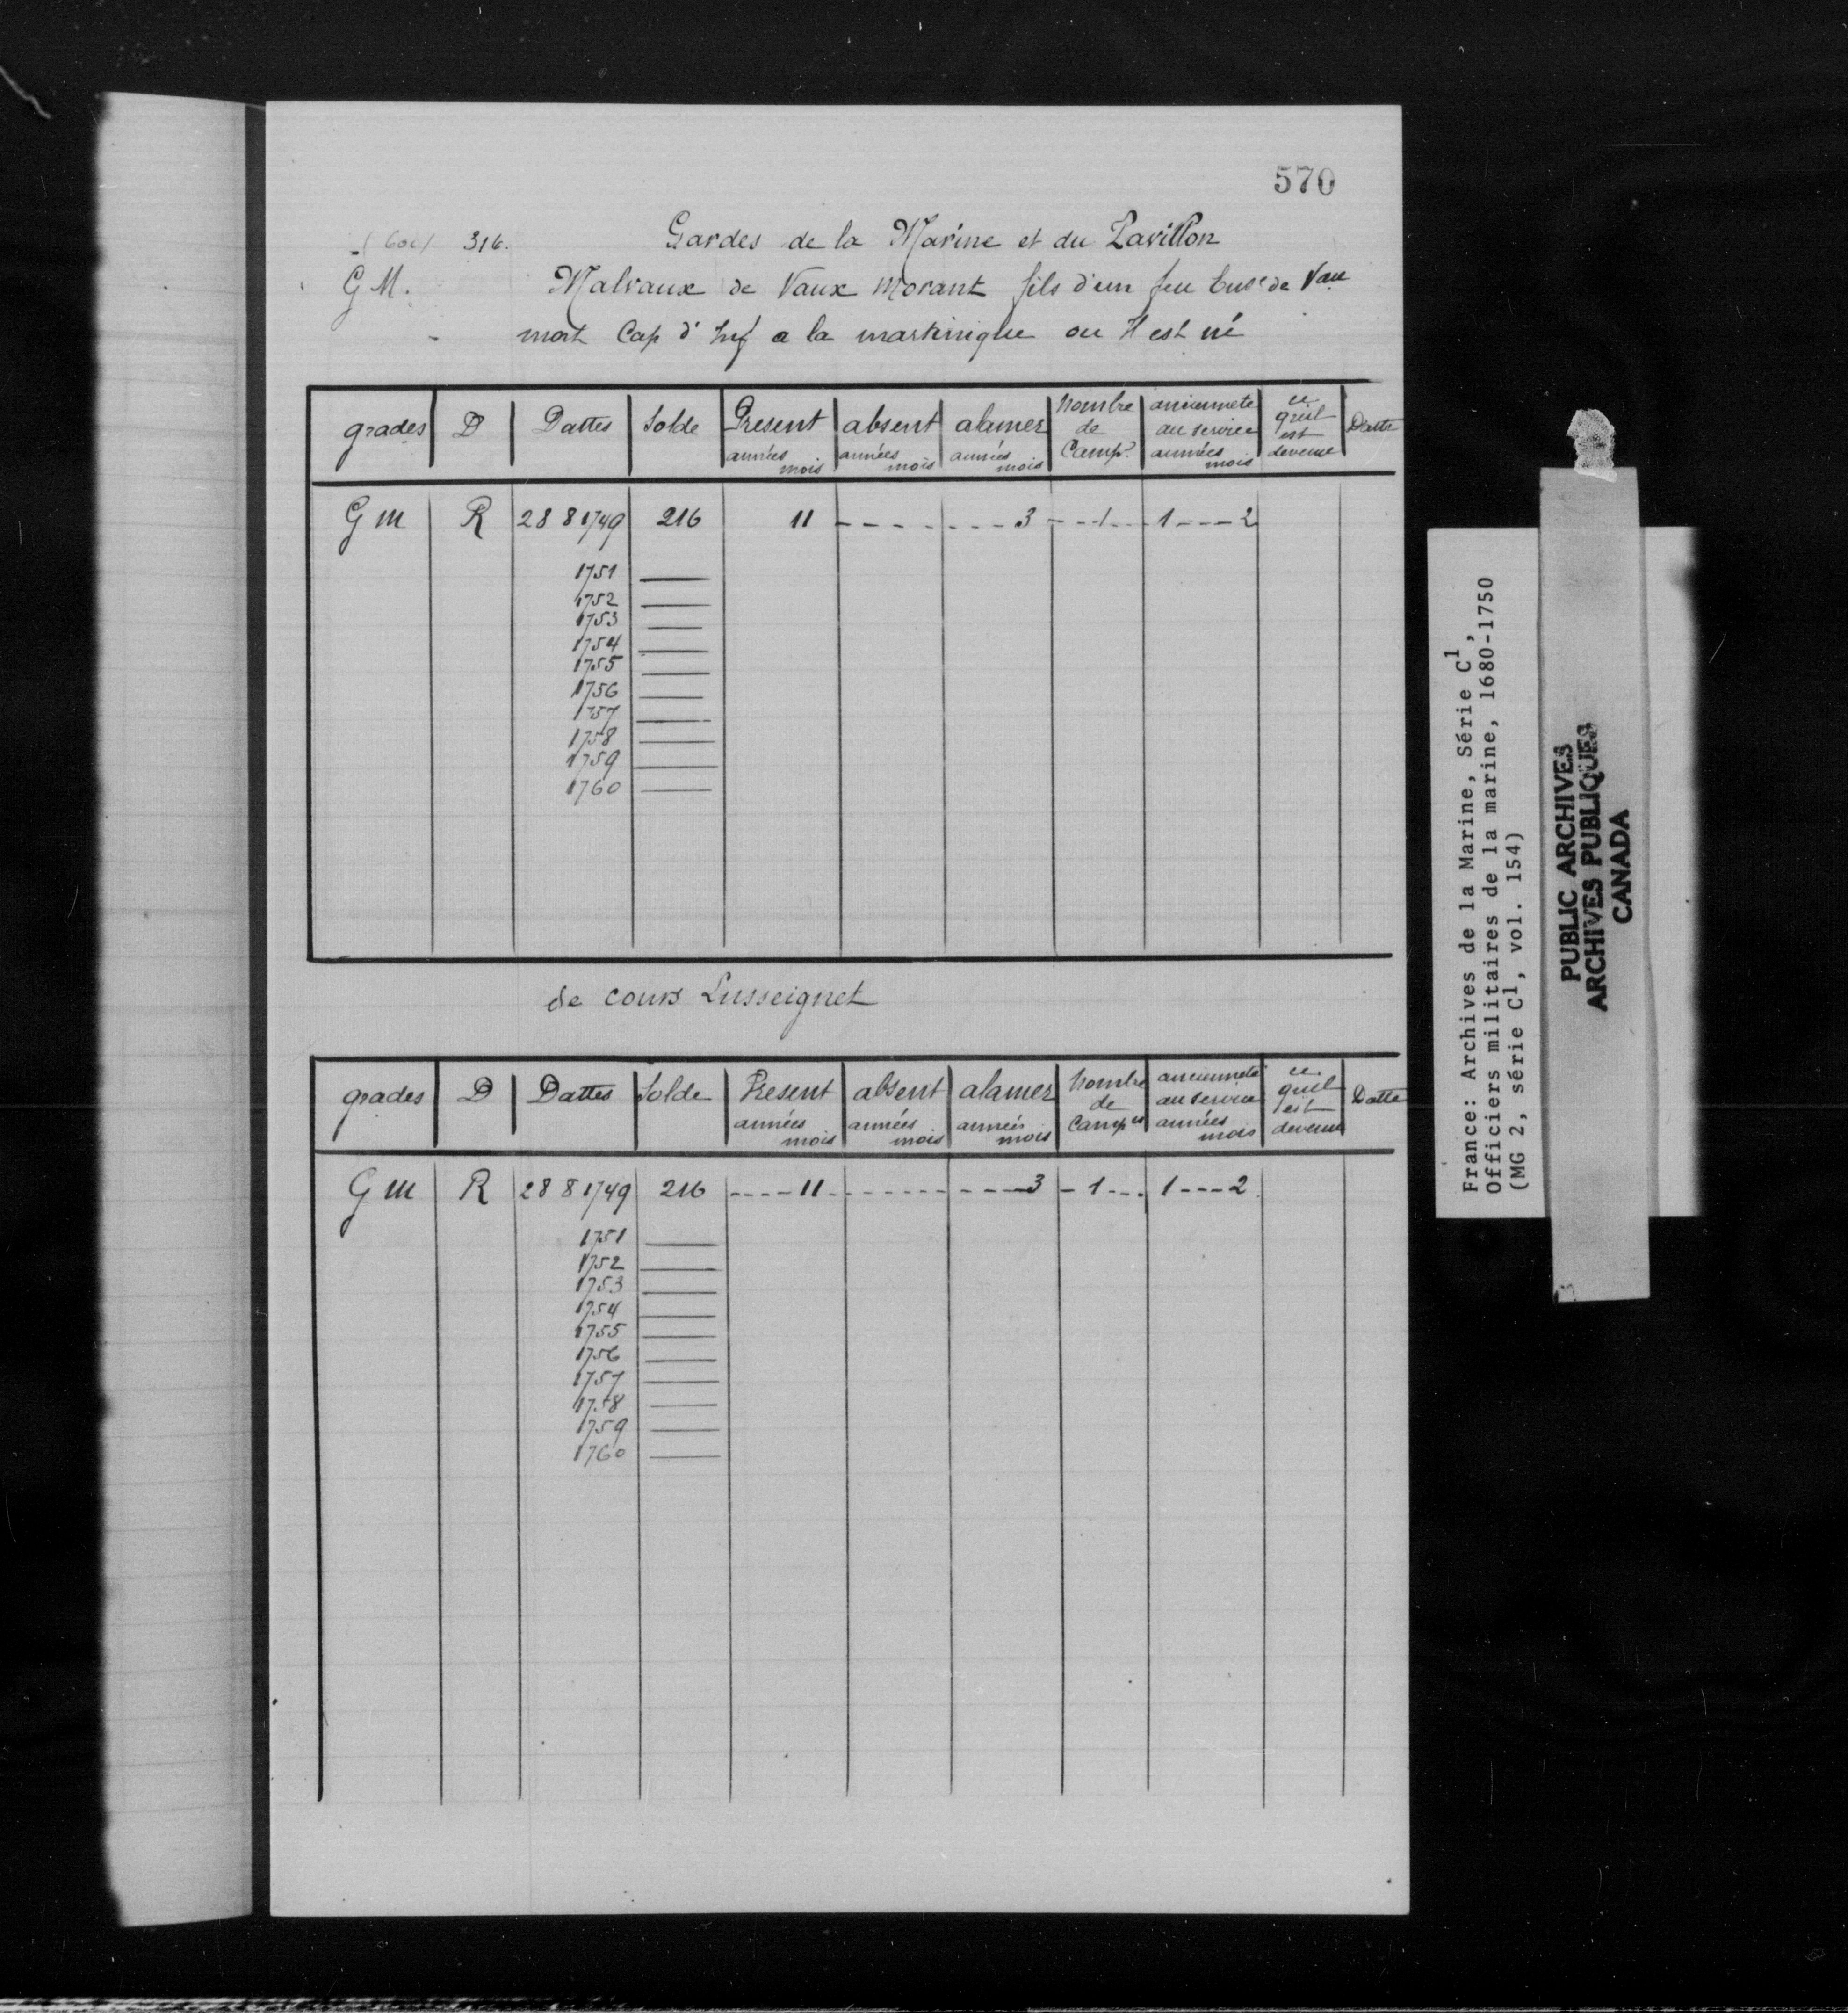 570
316. Gardes de la Marine et du Pavillon
G M. Malvaux de Vaux Morant fils d'un feu de Vau
mort Cap d' Inf a la martinique ou il est né
grades | D | Dattes | Solde | Present années mois | absent années mois | alamer années mois | Nombre de Camp. | ancienneté au service années mois | ce qu'il est devenu | Datte
G m | R | 28 8 1749 | 216 | 11 - - - - - - - 3 - - 1 - - - 1 - - - - 2
1751 ——
1752 ——
1753 ——
1754 ——
1755 ——
1756 ——
1757 ——
1758 ——
1759 ——
1760 ——
de cours Lusseignet
grades | D | Dattes | Solde | Present années mois | absent années mois | alamer années mois | Nombre de Campes | ancienneté au service années mois | ce qu'il est devenu | Datte
G m | R | 28 8 1749 | 216 | - - - - 11 - - - - - - - - - - - 3 - 1 - - - 1 - - - 2
1751 ——
1752 ——
1753 ——
1754 ——
1755 ——
1756 ——
1757 ——
1758 ——
1759 ——
1760 ——
France: Archives de la Marine, Série C1,
Officiers militaires de la marine, 1680-1750
(MG 2, série C1, vol. 154)
PUBLIC ARCHIVES
ARCHIVES PUBLIQUES
CANADA